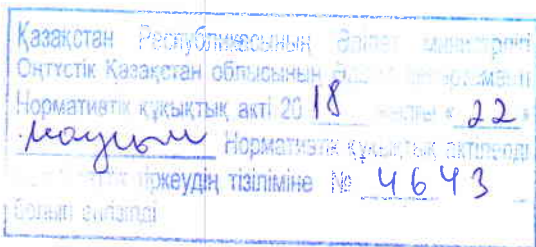 Қазақстан Республикасының Әділет министрлігі
Оңтүстік Қазақстан облысының Әділет департаменті
Нормативтік құқықтық акті 2018 жылғы « 22 »
маусым Нормативтік құқықтық актілерді
тіркеудің тізіліміне № 4643
болып енгізілді